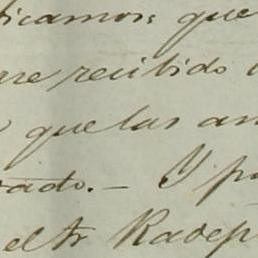 ticamos; que
re recibido
que las an
rado. — Y p
el Sr Radep